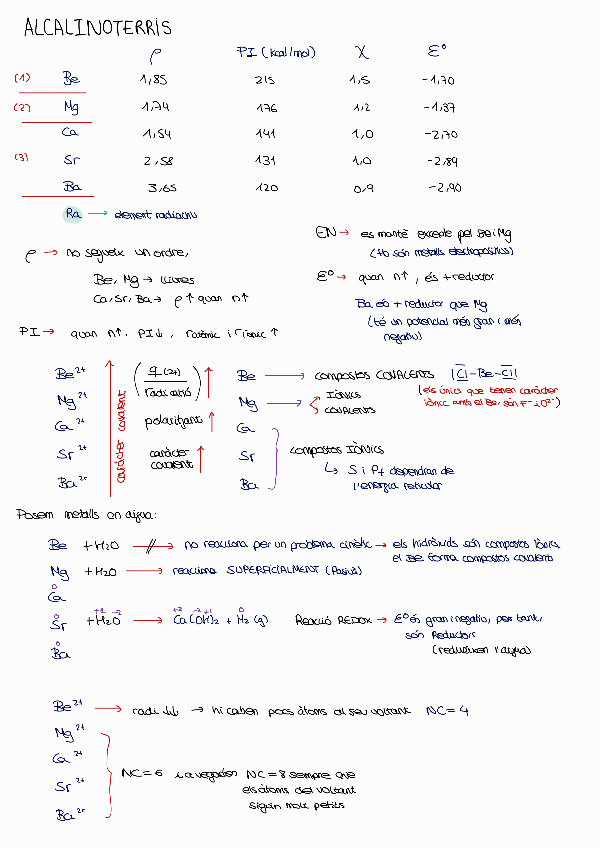 ALCALINOTERRIS
ρ PI (kcal/mol) χ ε°
(1) Be 1,85 215 1,5 -1,70
(2) Mg 1,74 176 1,2 -1,37
Ca 1,54 141 1,0 -2,70
(3) Sr 2,58 131 1,0 -2,89
Ba 3,65 120 0,9 -2,90
Ra → element radiactiu
ρ → no segueix un ordre,
Be, Mg → lleures
Ca, Sr, Ba → ρ ↑ quan n↑
EN → es manté excepte pel Be i Mg
(tb són metalls electropositius)
ε° → quan n↑, és + reductor
Ba és + reductor que Mg
(té un potencial més gran i més
negatiu)
PI → quan n↑, PI↓, r atòmic i r iònic ↑
Be²⁺
Mg²⁺
Ca²⁺
Sr²⁺
Ba²⁺
caràcter covalent
(q(2+) / radi catió) ↑
polaritzant ↑
caràcter
covalent ↑
Be → compostos COVALENTS |Cl-Be-Cl|
(els únics que tenen caràcter
iònic amb el Be, són F⁻ i O²⁻)
Mg → IÒNICS
COVALENTS
Ca
Sr
Ba
compostos IÒNICS
↳ S i Pf dependran de
l'energia reticular
Posem metalls en aigua:
Be + H₂O → no reacciona per un problema cinètic → els hidròxids són compostos iònics
el Be forma compostos covalents
Mg + H₂O → reacciona SUPERFICIALMENT (Pasiva)
0
Ca
0 +1 -2 +2 -2 +1 0
Sr + H₂O → Ca(OH)₂ + H₂ (g) Reacció REDOX → ε° és gran i negatiu, per tant,
són Reductors
(redueixen l'aigua)
0
Ba
Be²⁺ → radi ↓↓ → hi caben pocs àtoms al seu voltant NC = 4
Mg²⁺
Ca²⁺
Sr²⁺
Ba²⁺
NC = 6 i a vegades NC = 8 sempre que
els àtoms del voltant
siguin molt petits